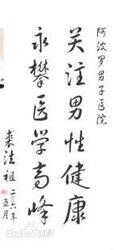 阿波罗男子医院
关注男性健康
永攀医学高峰
裘法祖
二〇〇六年五月